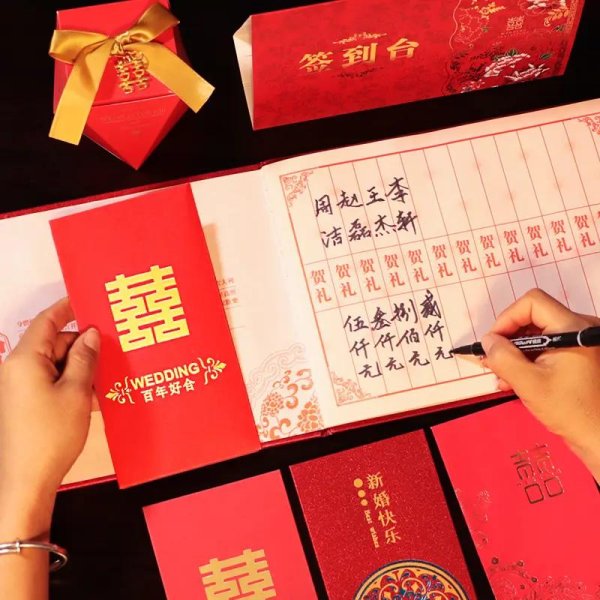 签到台
李轩 贺礼 贰仟元
王杰 贺礼 捌佰元
赵磊 贺礼 叁仟元
周洁 贺礼 伍仟元
贺礼
贺礼
贺礼
贺礼
贺礼
贺礼
囍
WEDDING
百年好合
囍
新婚快乐
囍